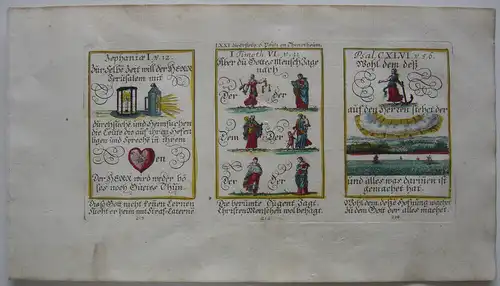 Zephaniæ I. v. 12.
Zur selben Zeit will der HERR
Jerusalem mit
durchsuche und Heimsuchen
die Leute die auf ihren Hefen
ligen und Spreche in ihrem
en
Der HERR wird weder bö-
ses noch Gutes Thun.
nicht lernen
mit Straf-Laterne
I Timoth VI. v. 11
Aber du Gottes Mensch Jage
nach
Der Der
Der Der
Der Der
Die berümte Tugent Jagt
Christen Menschen wol behagt.
Psal. CXLVI. v. 5 6.
Wohl dem deß
auf den Herren stehet der
und alles was darinen ist
gemachet hat.
Wohl dem, deße Hoffnung wachet
Zu dem Gott der alles machet.